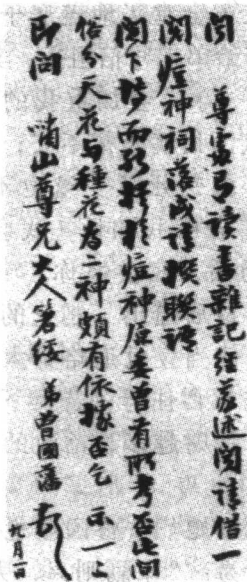 聞 尊處有讀書雜記經義述聞請借一
閱痘神祠落成請撰聯語
閣下博而能擇於痘神原委曾有所考否此間
俗分天花与種花為二神頗有依據否乞 示一上
即問 嘯山尊兄大人箸綏 弟曾國藩頓
九月一日